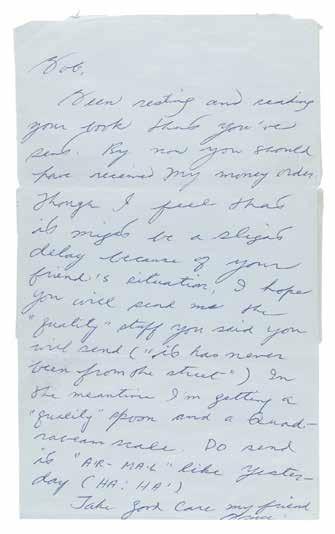 Bob,
Been resting and reading
your book that you've
sent. By now you should
have received my money order
though I feel that
it might be a slight
delay because of your
friend's situation. I hope
you will send me the
"quality" stuff you said you
will send ("it has never
been from the street") In
the meantime I'm getting a
"quality" spoon and a
scale. Do send
it "AR-MAIL" like yester-
day (HA! HA!)
Take good care my friend
Bruce